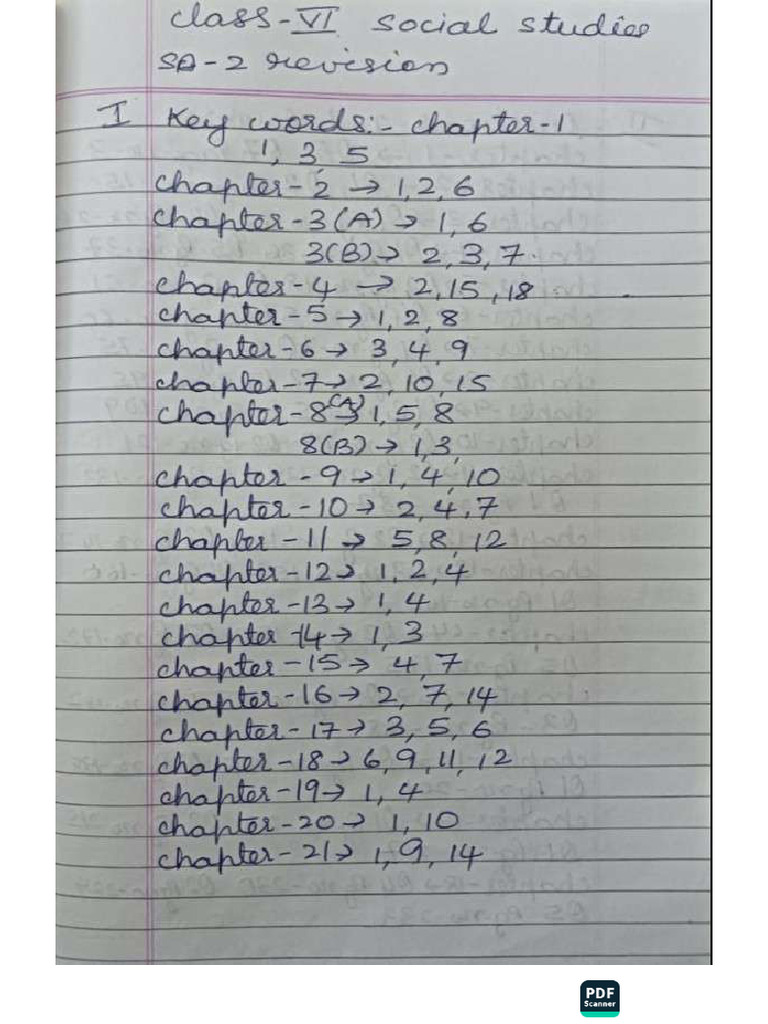 class-VI social studies
SA-2 revision
I Key words:- chapter-1
1, 3, 5
chapter-2 → 1, 2, 6
chapter-3(A) → 1, 6
3(B) → 2, 3, 7.
chapter-4 → 2, 15, 18
chapter-5 → 1, 2, 8
chapter-6 → 3, 4, 9
chapter-7 → 2, 10, 15
chapter-8(A) → 1, 5, 8
8(B) → 1, 3,
chapter-9 → 1, 4, 10
chapter-10 → 2, 4, 7
chapter-11 → 5, 8, 12
chapter-12 → 1, 2, 4
chapter-13 → 1, 4
chapter-14 → 1, 3
chapter-15 → 4, 7
chapter-16 → 2, 7, 14
chapter-17 → 3, 5, 6
chapter-18 → 6, 9, 11, 12
chapter-19 → 1, 4
chapter-20 → 1, 10
chapter-21 → 1, 9, 14
PDF
Scanner